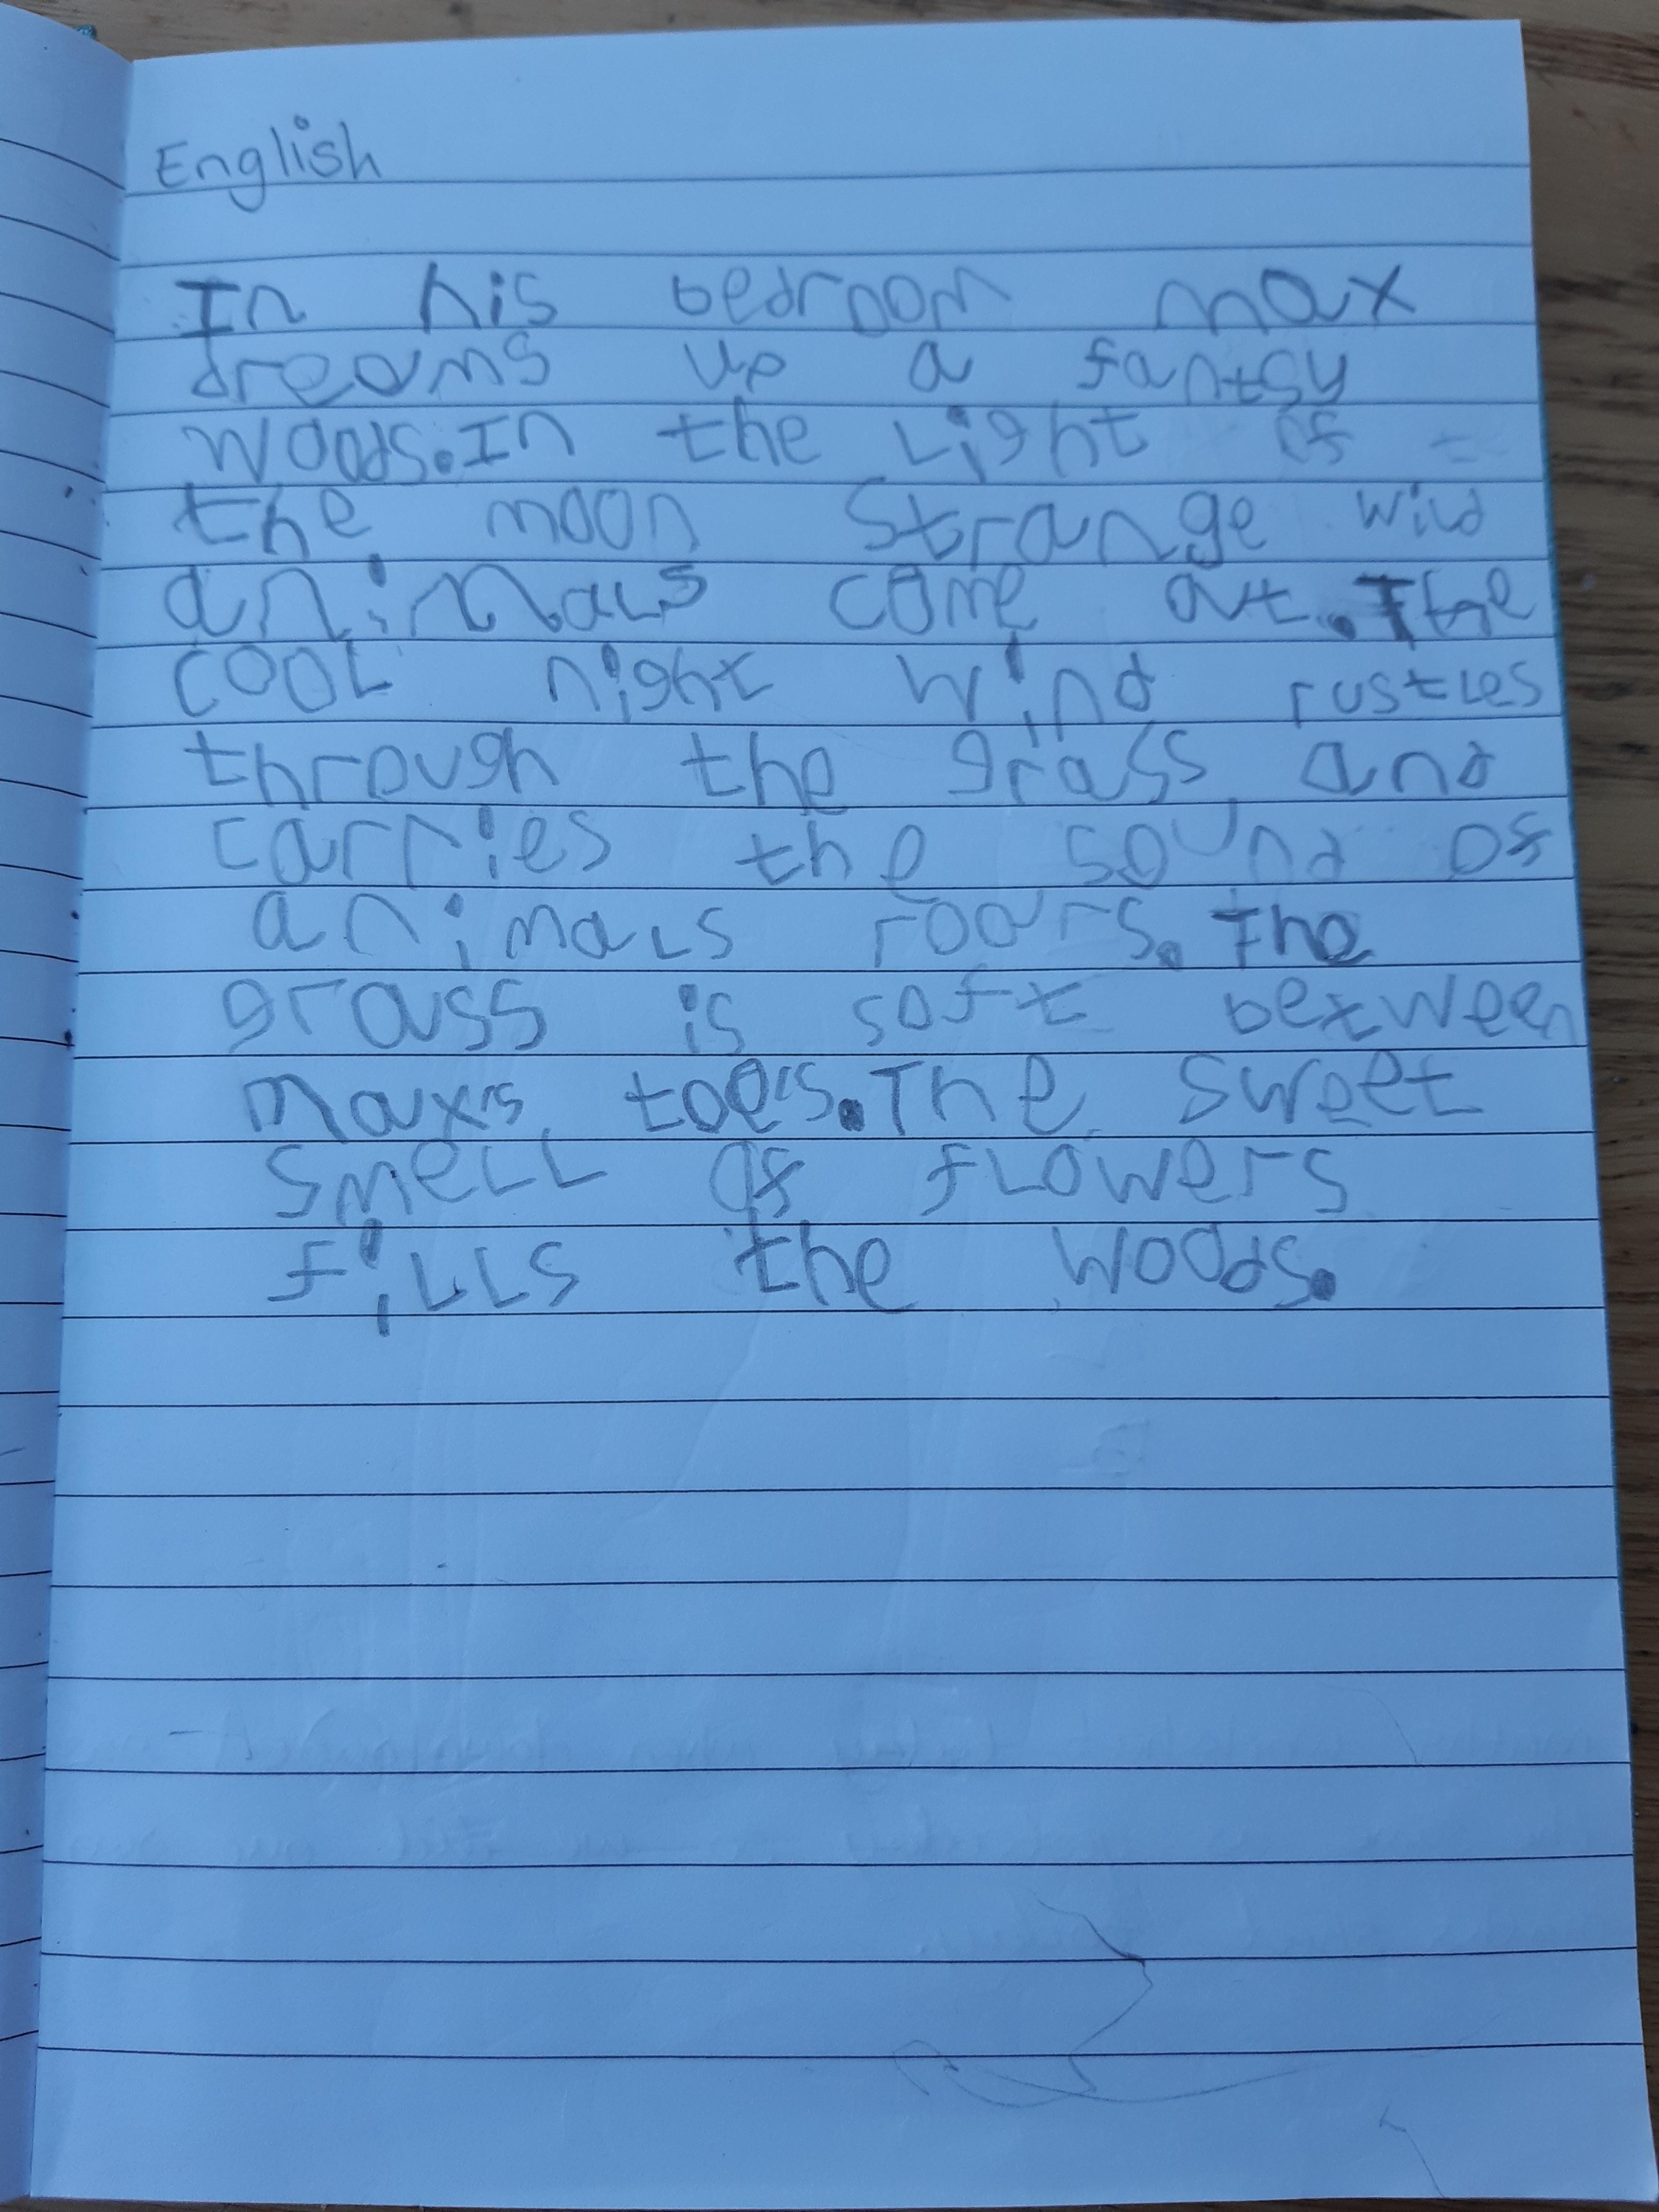 English
In his bedroom max
dreams up a fantsy
woods. In the Light of
the moon strange wild
animals come out. The
cool night wind rustles
through the grass and
carries the sound of
animals roars. The
grass is soft between
max's toe's. The sweet
smell of flowers
fills the woods.